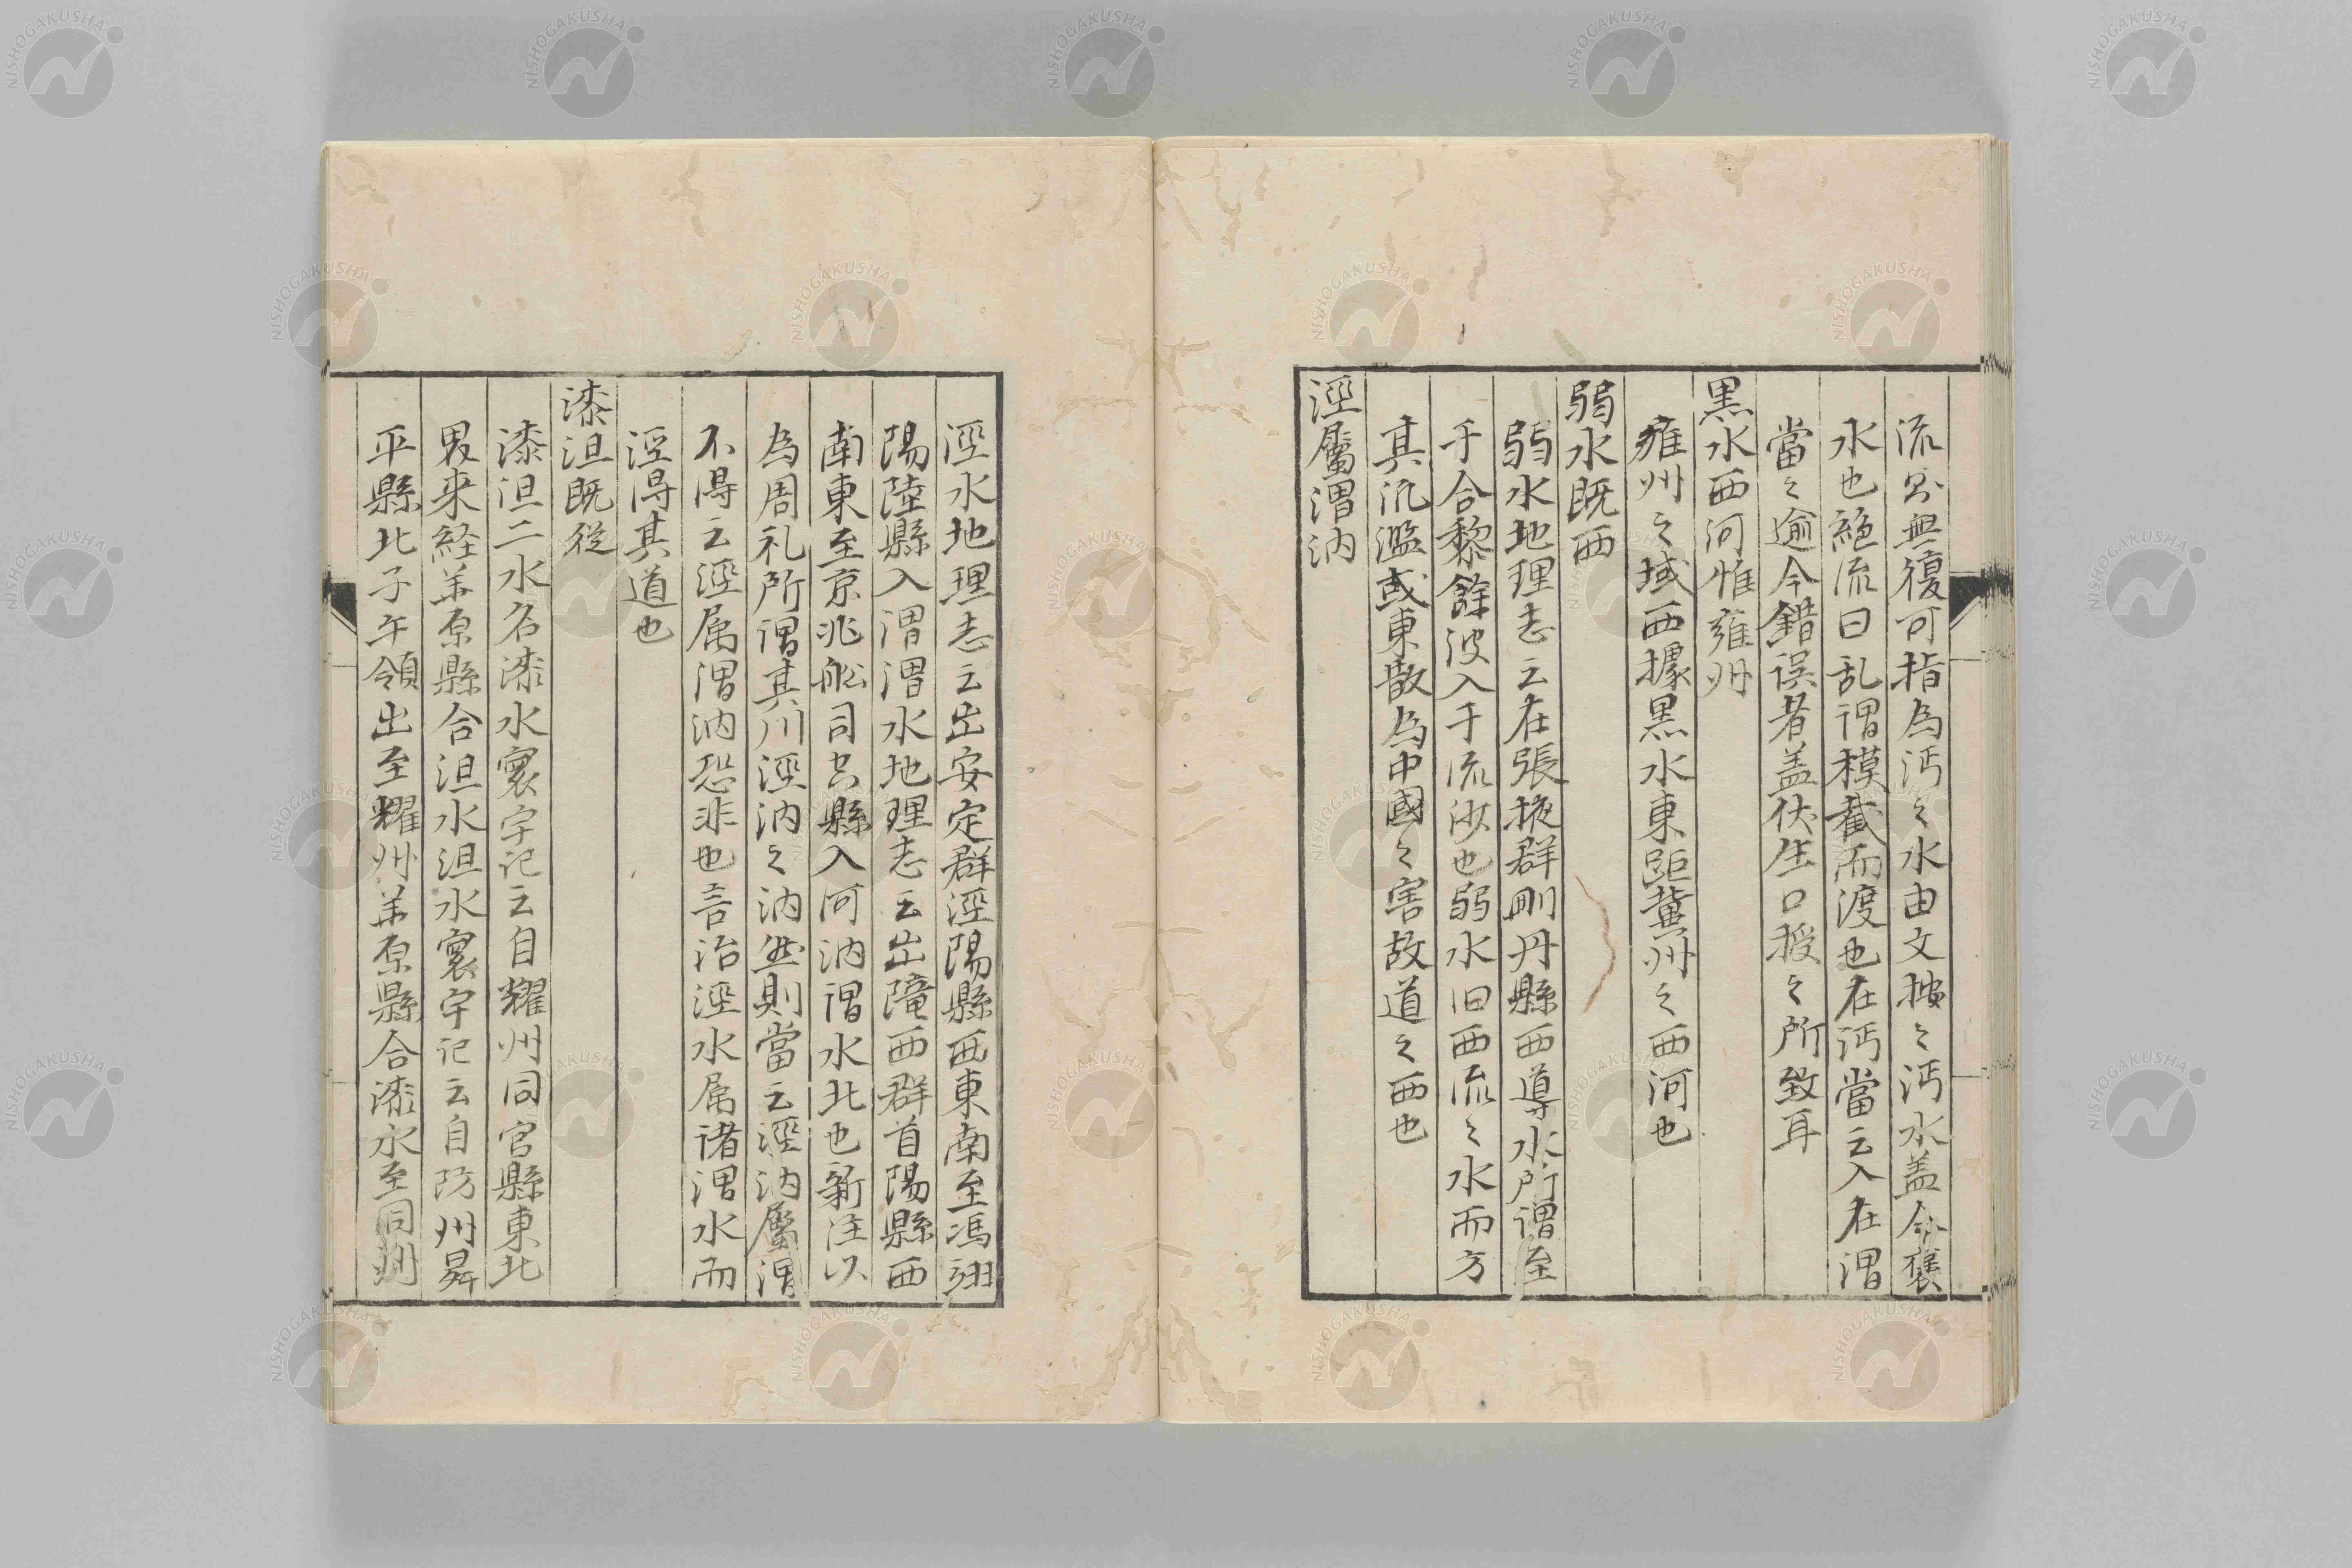 流出無復可指為沔之水由文捜之沔水盖今褒
水也絶流曰乱謂橫截而渡也在沔當云入在渭
當之逾今錯误者盖伏生口授之所致耳
黒水西河惟雍州
雍州之域西據黒水東距冀州之西河也
弱水既西
弱水地理志云在張掖群刪丹縣西導水所謂至
于合黎餘波入于流沙也弱水旧西流之水而方
其汎濫或東散為中國之害故道之西也
涇屬渭汭
涇水地理志云出安定群涇陽縣西東南至馮翊
陽陸縣入渭渭水地理志云出隴西群首陽縣西
南東至京兆船司空縣入河汭謂水北也新注以
為周礼所謂其川涇汭之汭然則當云涇汭屬渭
不得云涇属渭汭恐非也言治涇水属诸渭水而
涇得其道也
漆沮既従
漆沮二水名漆水寰宇记云自耀州同官縣東北
界来経華原縣合沮水沮水寰宇记云自坊州昇
平縣北子午領出至耀州華原縣合漆水至同州
NISHOGAKUSHA